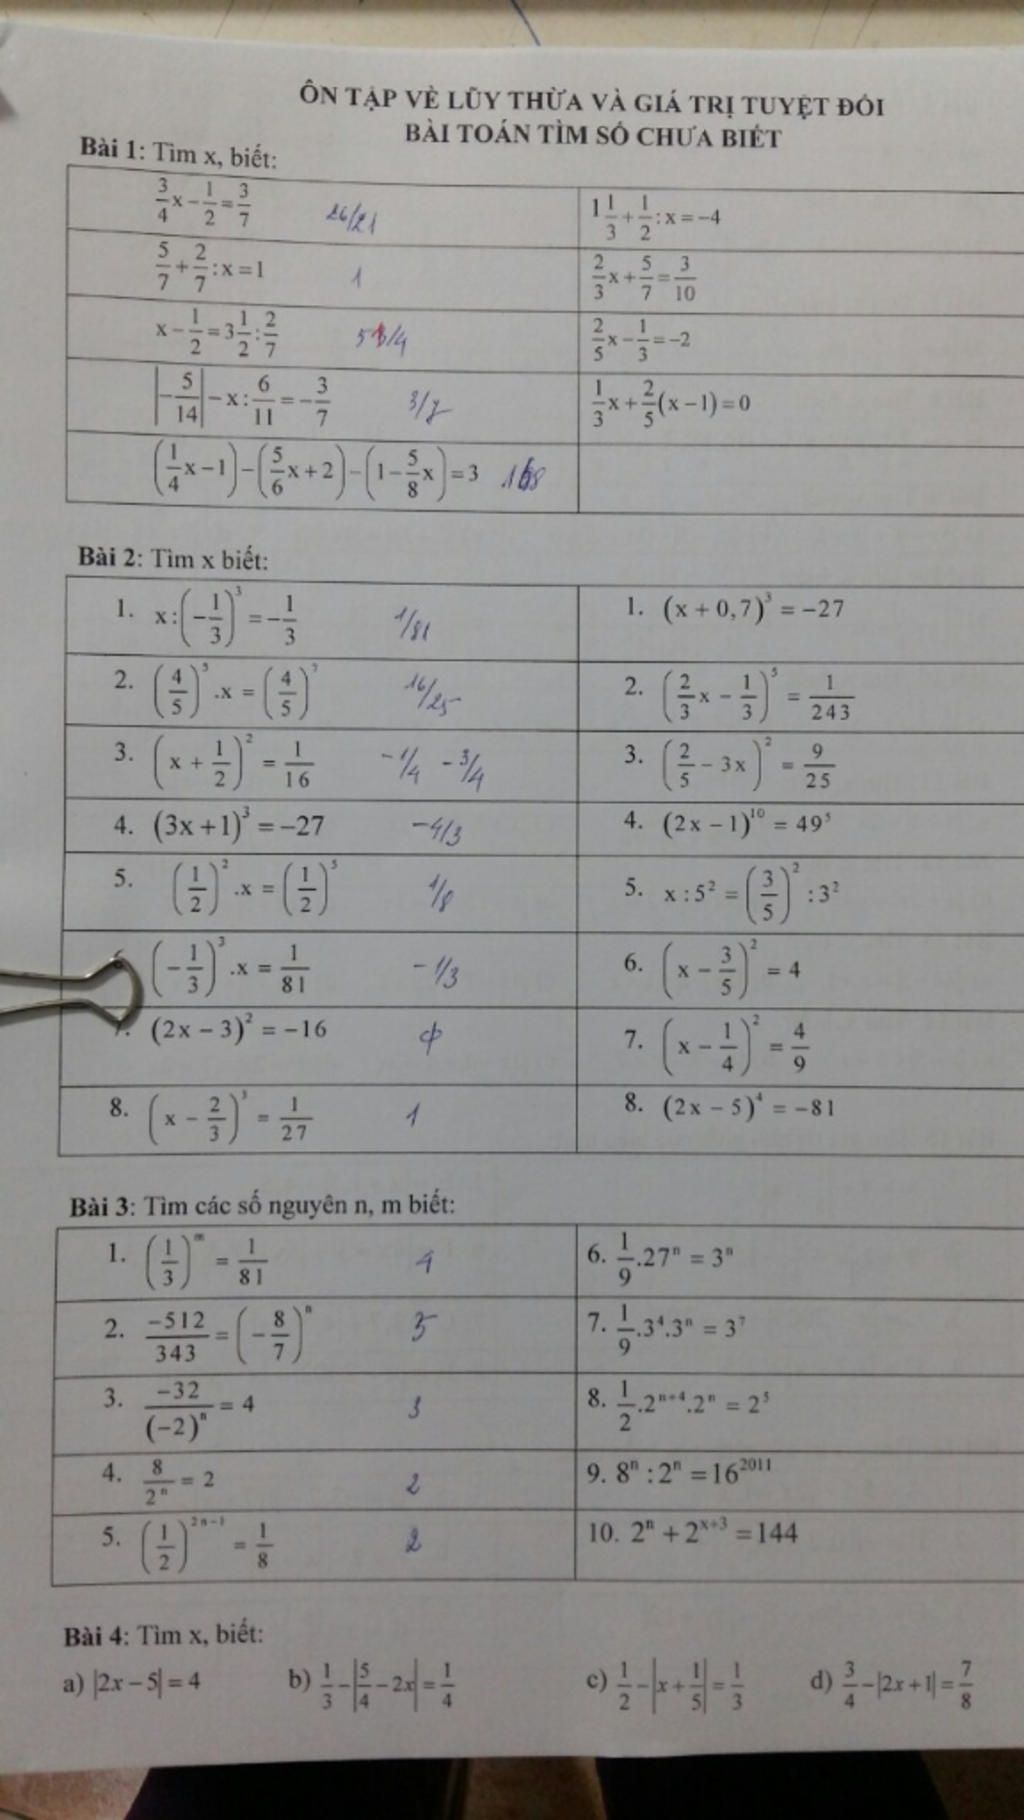 ÔN TẬP VỀ LŨY THỪA VÀ GIÁ TRỊ TUYỆT ĐỐI
BÀI TOÁN TÌM SỐ CHƯA BIẾT
Bài 1: Tìm x, biết:
3/4 x − 1/2 = 3/7 26/21
1 1/3 + 1/2 : x = −4
5/7 + 2/7 : x = 1 1
2/3 x + 5/7 = 3/10
x − 1/2 = 3 1/2 : 2/7
2/5 x − 1/3 = −2
|−5/14| − x : 6/11 = −3/7 3/7
1/3 x + 2/5 (x − 1) = 0
(1/4 x − 1) − (5/6 x + 2) − (1 − 5/8 x) = 3
Bài 2: Tìm x biết:
1. x : (−1/3)³ = −1/3 1/81
1. (x + 0,7)³ = −27
2. (4/5)⁵ .x = (4/5)⁷ 16/25
2. (2/3 x − 1/3)⁵ = 1/243
3. (x + 1/2)² = 1/16 −1/4 −3/4
3. (2/5 − 3x)² = 9/25
4. (3x + 1)³ = −27 −4/3
4. (2x − 1)¹⁰ = 49⁵
5. (1/2)² .x = (1/2)⁵ 1/8
5. x : 5² = (3/5)² : 3²
(−1/3)³ .x = 1/81 −1/3
6. (x − 3/5)² = 4
7. (2x − 3)² = −16 ϕ
7. (x − 1/4)² = 4/9
8. (x − 2/3)³ = 1/27 1
8. (2x − 5)⁴ = −81
Bài 3: Tìm các số nguyên n, m biết:
1. (1/3)ᵐ = 1/81 4
6. 1/9 .27ⁿ = 3ⁿ
2. −512/343 = (−8/7)ⁿ 3
7. 1/9 .3⁴.3ⁿ = 3⁷
3. −32/(−2)ⁿ = 4 3
8. 1/2 .2ⁿ⁺⁴.2ⁿ = 2⁵
4. 8/2ⁿ = 2 2
9. 8ⁿ : 2ⁿ = 16²⁰¹¹
5. (1/2)²ⁿ⁻¹ = 1/8 2
10. 2ⁿ + 2ˣ⁺³ = 144
Bài 4: Tìm x, biết:
a) |2x − 5| = 4 b) 1/3 − |5/4 − 2x| = 1/4 c) 1/2 − |x + 1/5| = 1/3 d) 3/4 − |2x + 1| = 7/8